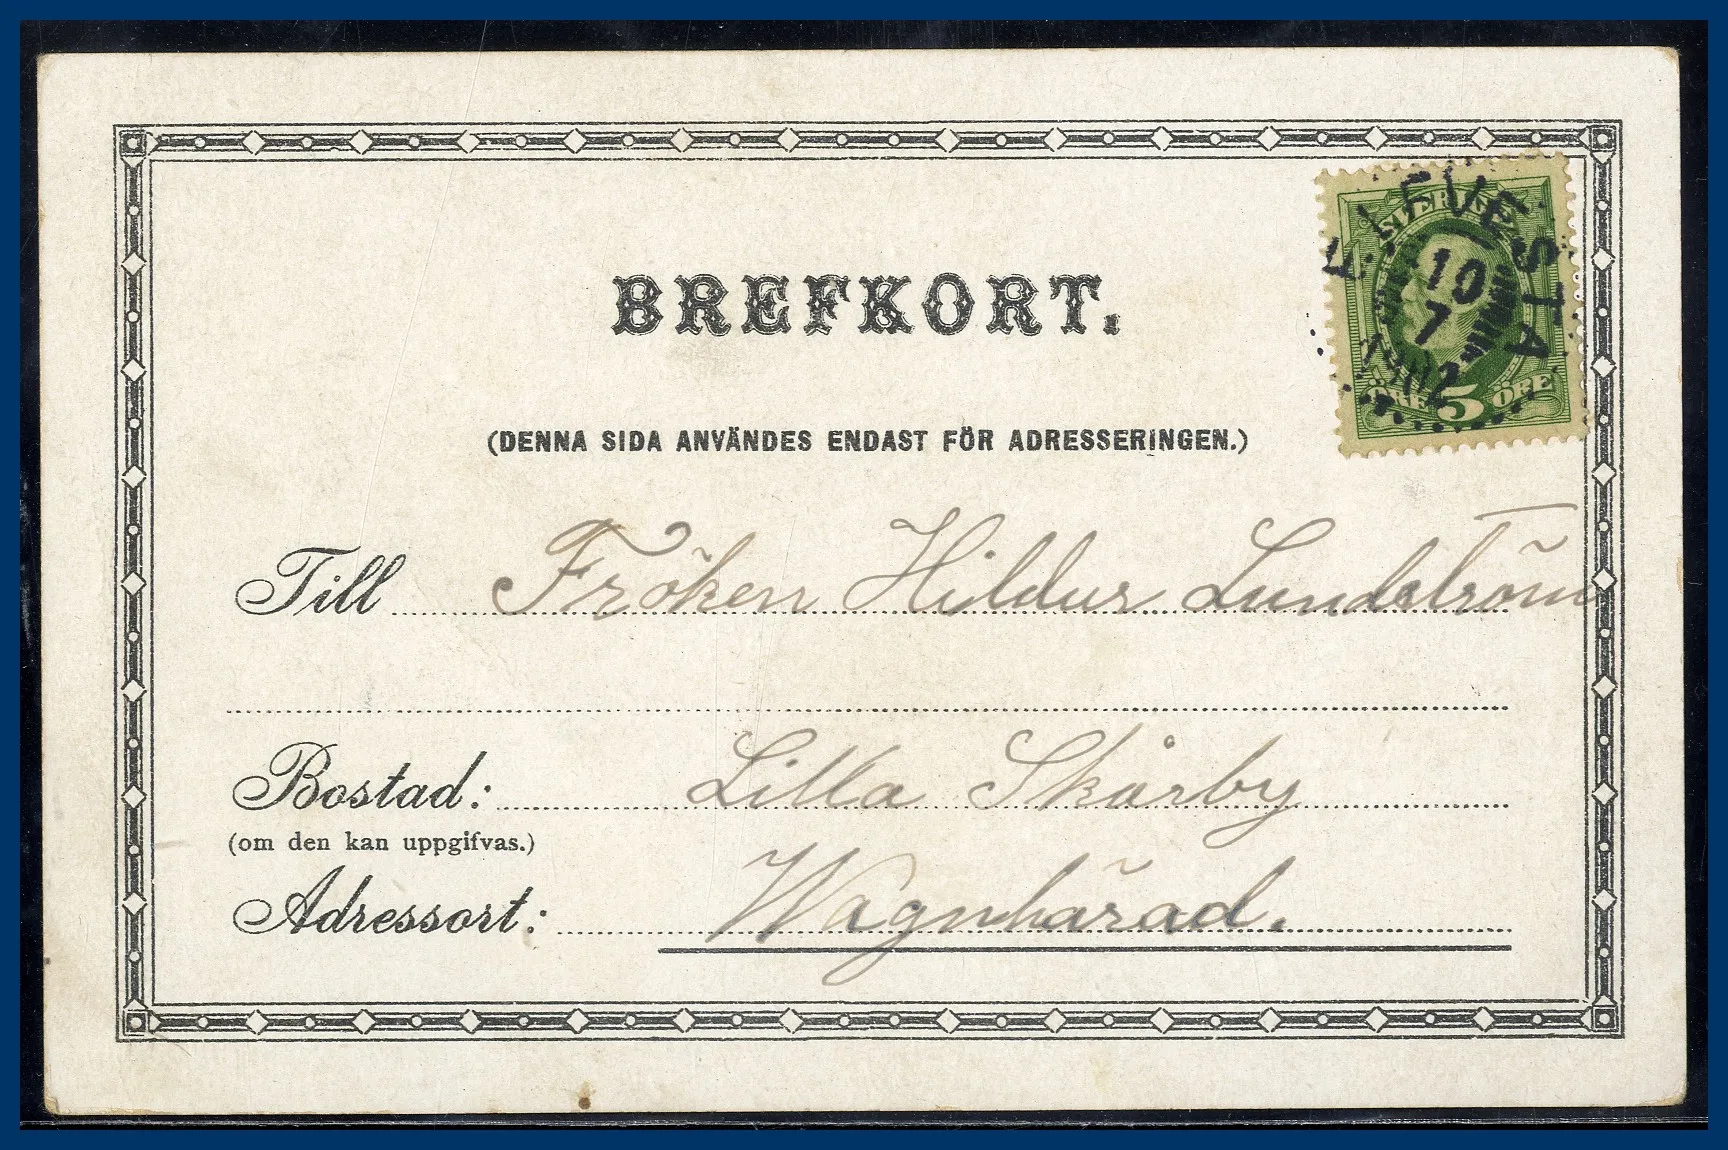 SVERIGE
10
7
1902
ÖRE 5 ÖRE
BREFKORT.
(DENNA SIDA ANVÄNDES ENDAST FÖR ADRESSERINGEN.)
Till Fröken Hildur Lundström
Bostad: Lilla Skårby
(om den kan uppgifvas.)
Adressort: Wagnhärad.